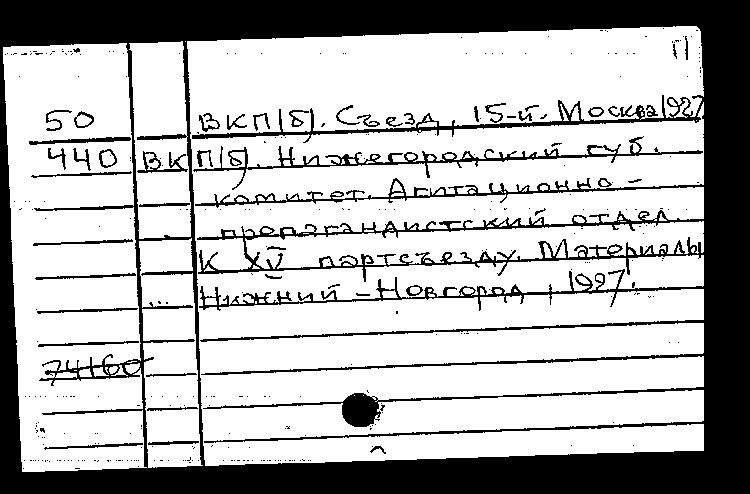 П
50 ВКП(б). Съезд, 15-й. Москва 1927
440 ВКП(б). Нижегородский губ.
комитет. Агитационно-
пропагандистский отдел.
К XV партсъезду. Материалы
... Нижний-Новгород, 1927.
74160